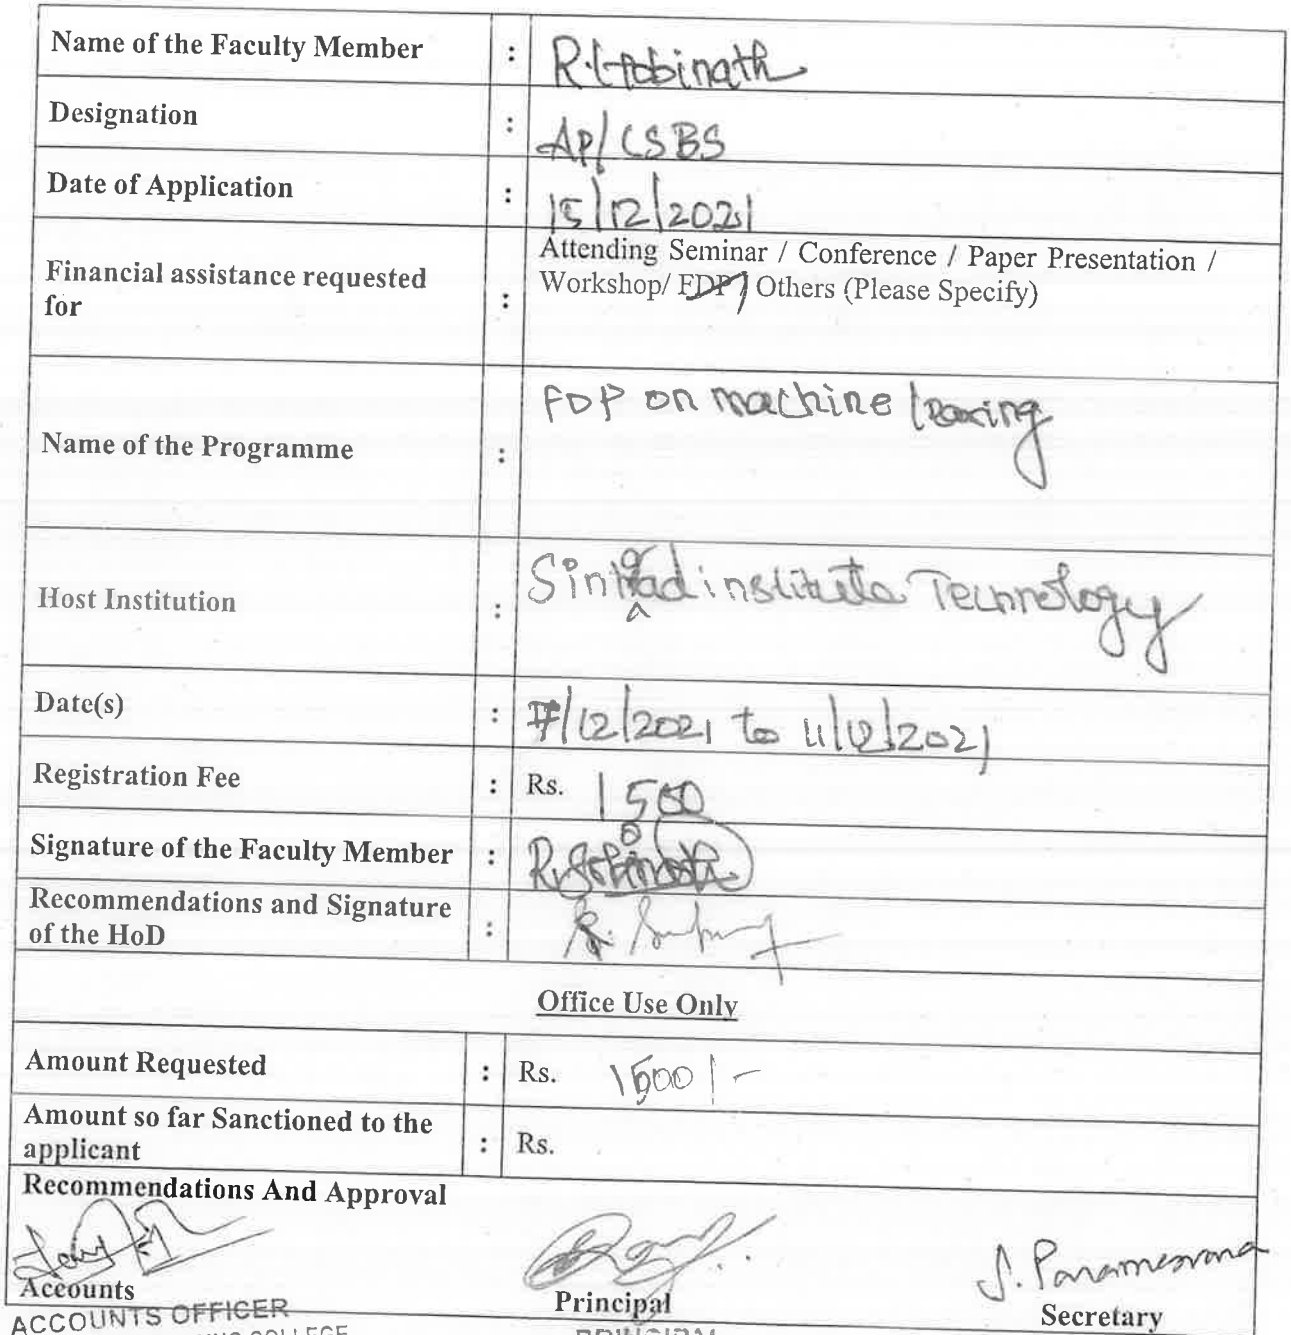 Name of the Faculty Member : R.Gobinath
Designation : AP/CSBS
Date of Application : 15/12/2021
Financial assistance requested for : Attending Seminar / Conference / Paper Presentation /
Workshop/ FDP / Others (Please Specify)
Name of the Programme : FDP on machine learing
Host Institution : institute Technology
Date(s) : 7/12/2021 to 11/12/2021
Registration Fee : Rs. 1500
Signature of the Faculty Member : R.Gobinath
Recommendations and Signature
of the HoD :
Office Use Only
Amount Requested : Rs. 1500/-
Amount so far Sanctioned to the
applicant : Rs.
Recommendations And Approval
S. Parameswara
Accounts Principal Secretary
ACCOUNTS OFFICER
COLLEGE
PRINCIPAL